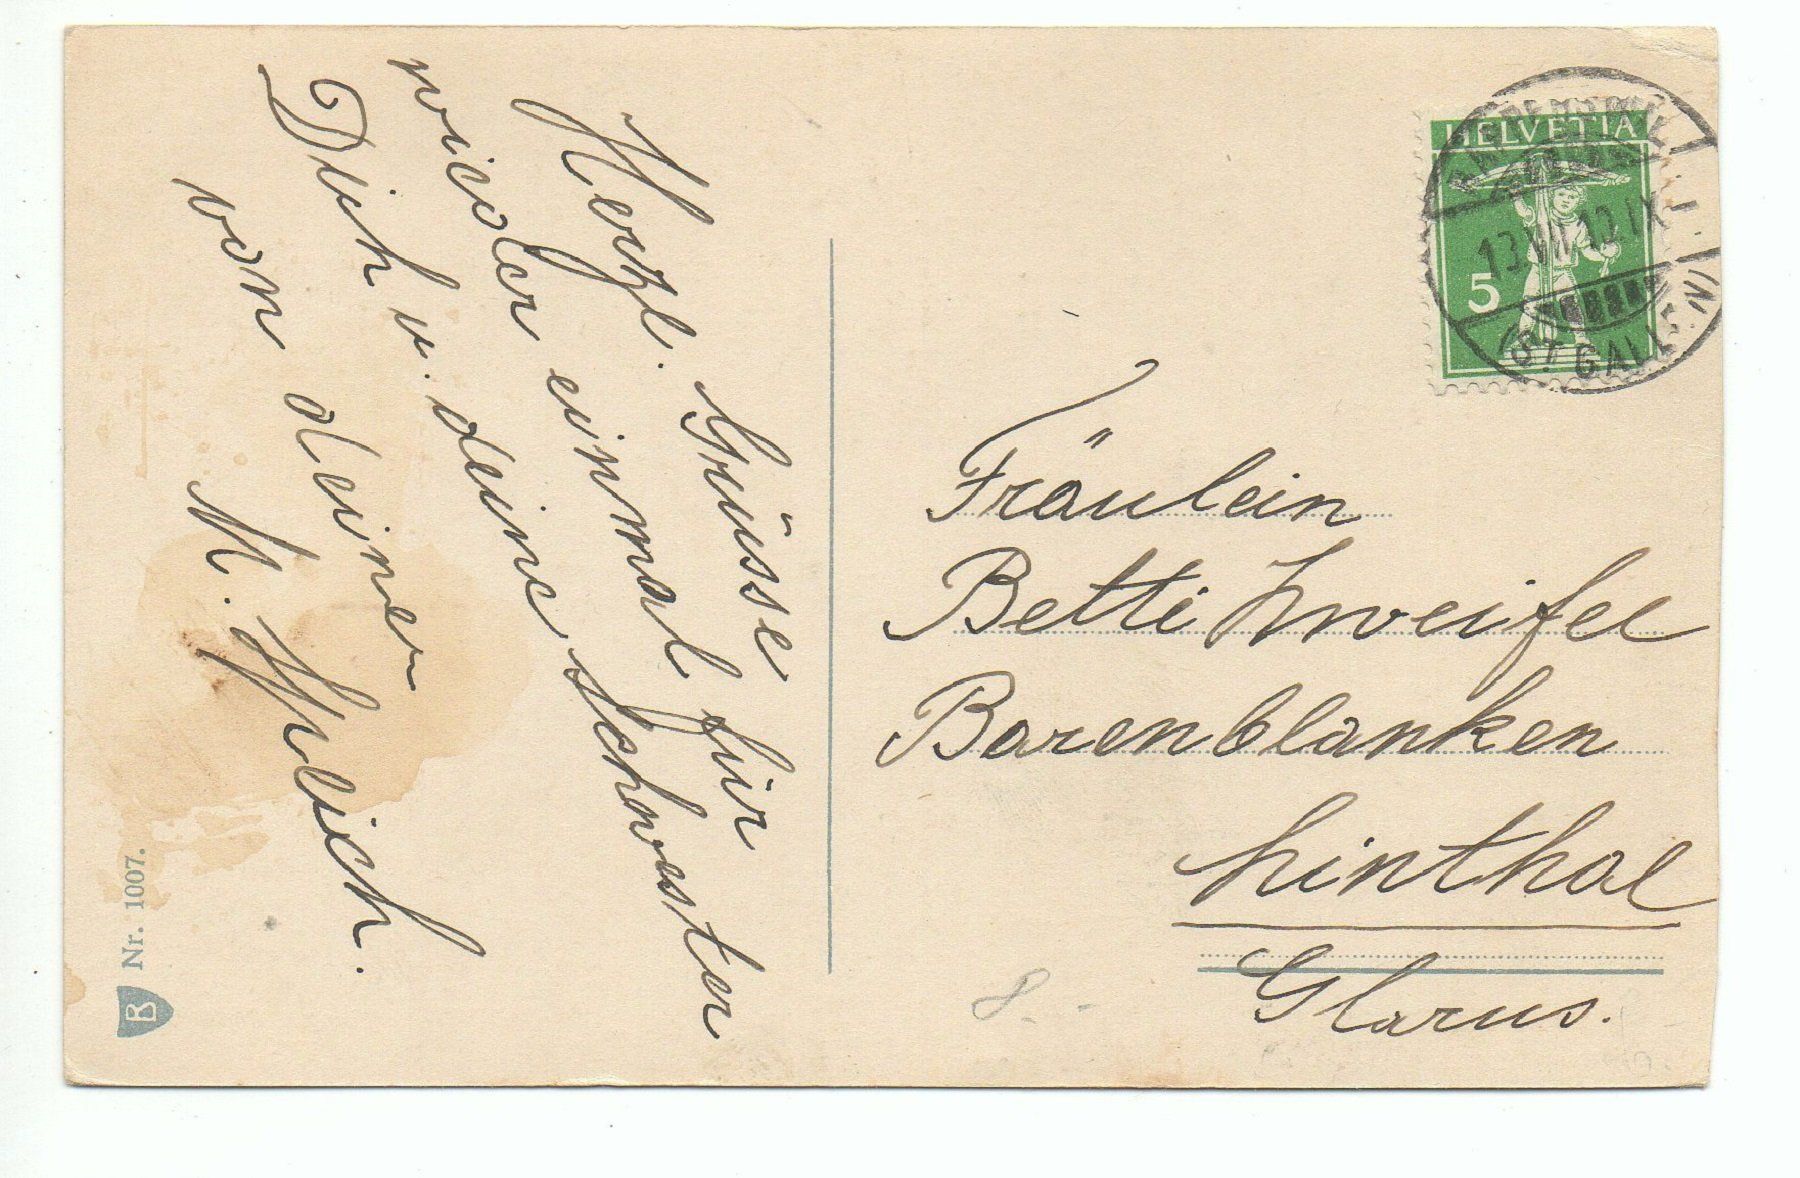 Herzl. Grüsse
wieder einmal für
Dich u. deine Schwester
von deiner
M.
Nr. 1007.
B
HELVETIA
5
RAPPERSWIL
(ST. GALLEN)
Fräulein
Betti Zweifel
Barenblanken
Linthal
Glarus.
8.-